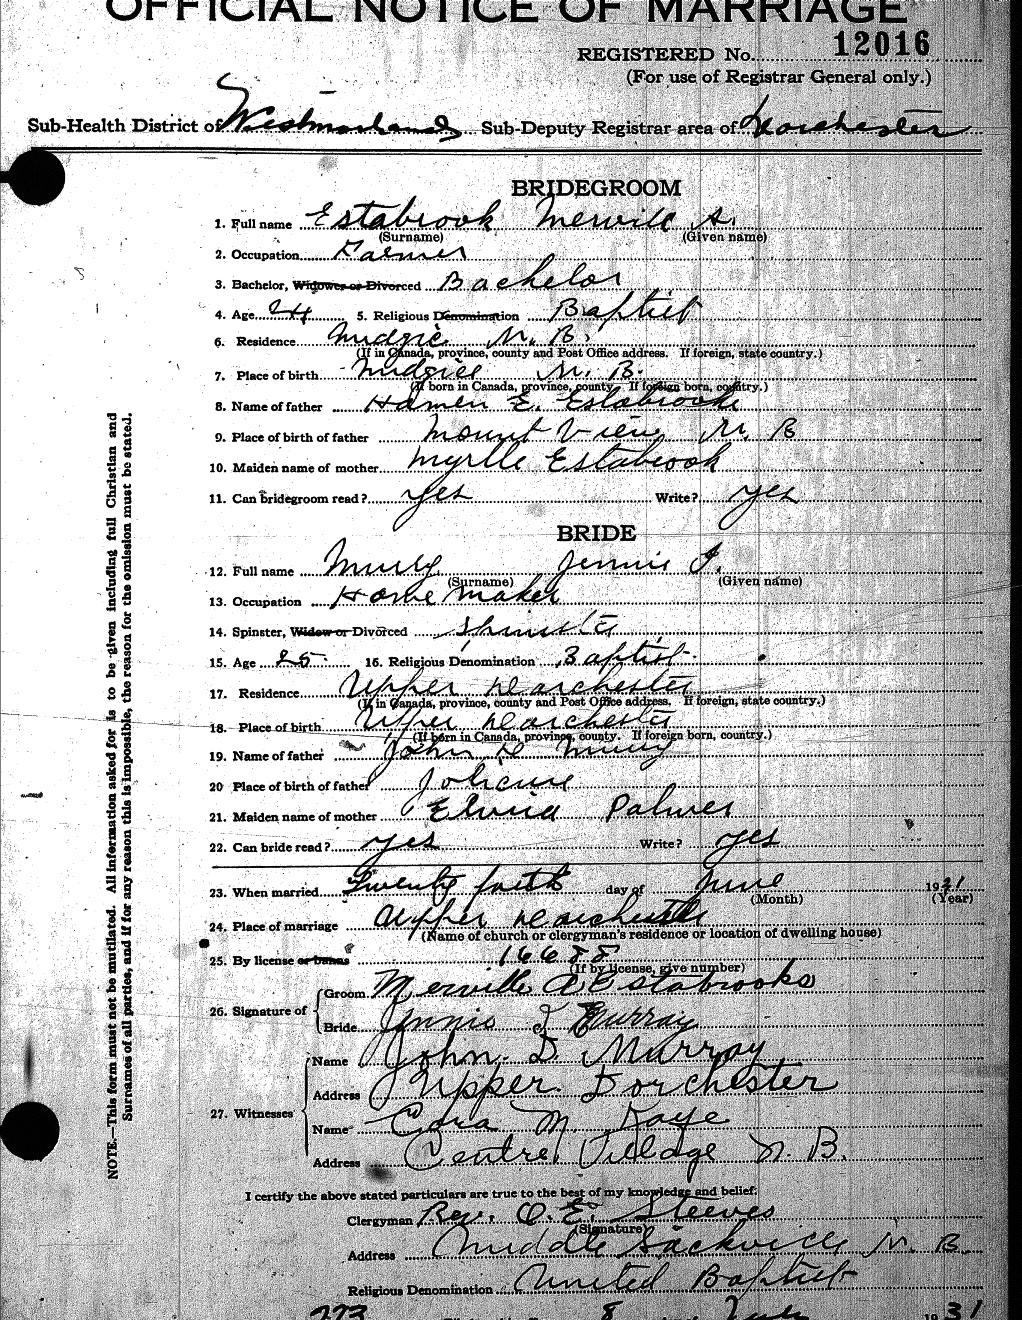 OFFICIAL NOTICE OF MARRIAGE
REGISTERED No. 12016
(For use of Registrar General only.)
Sub-Health District of Westmorland Sub-Deputy Registrar area of Dorchester
BRIDEGROOM
1. Full name Estabrook Mervill A.
(Surname) (Given name)
2. Occupation Farmer
3. Bachelor, Widower or Divorced Bachelor
4. Age 24 5. Religious Denomination Baptist
6. Residence Midgic N. B.
(If in Canada, province, county and Post Office address. If foreign, state country.)
7. Place of birth Midgic N. B.
(If born in Canada, province, county. If foreign born, country.)
8. Name of father E. Estabrook
9. Place of birth of father Mount View N. B
10. Maiden name of mother Myrtle Estabrook
11. Can bridegroom read? yes Write? yes
BRIDE
12. Full name Murry Jennie I.
(Surname) (Given name)
13. Occupation Home maker
14. Spinster, Widow or Divorced Spinster
15. Age 25 16. Religious Denomination Baptist
17. Residence Upper Dorchester
(If in Canada, province, county and Post Office address. If foreign, state country.)
18. Place of birth Upper Dorchester
(If born in Canada, province, county. If foreign born, country.)
19. Name of father John D Murry
20 Place of birth of father Jolicure
21. Maiden name of mother Palmer
22. Can bride read? yes Write? yes
23. When married Twenty day of June 1931
(Month) (Year)
24. Place of marriage Upper Dorchester
(Name of church or clergyman's residence or location of dwelling house)
25. By license or banns 16688
(If by license, give number)
26. Signature of Groom Merville A Estabrooks
Bride Jennie I Murray
27. Witnesses Name John D. Murray
Address Upper Dorchester
Name Cora M. Kaye
Address Centre Village N. B.
I certify the above stated particulars are true to the best of my knowledge and belief.
Clergyman Rev. O. E. Steeves
(Signature)
Address Middle Sackville N. B.
Religious Denomination United Baptist
273 8 July 1931
NOTE.—This form must not be mutilated. All information asked for is to be given including full Christian and
Surnames of all parties, and if for any reason this is impossible, the reason for the omission must be stated.